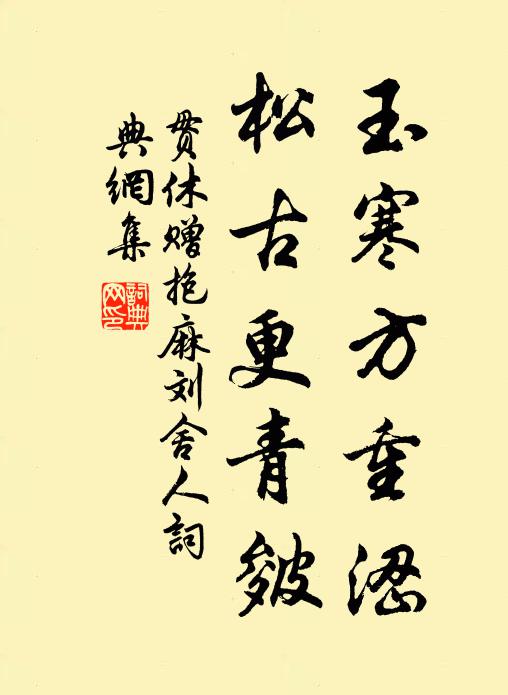 玉寒方重涩
松古更青皴
貫休赠抱麻刘舍人詞
典網集
詞典
网印